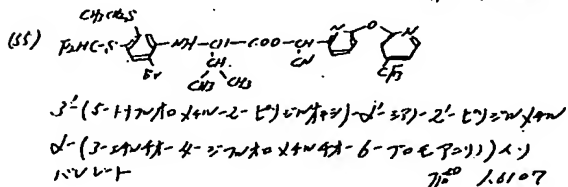 CH3CH2S
(55) F2HC-S -NH-CH-COO-CH- N -O- N
Br CH CN CF3
CH3 CH3
3'-(5-トリフルオロメチル-2-ピリジルオキシ)-α'-シアノ-2'-ピリジルメチル
α-(3-エチルチオ-4-ジフルオロメチルチオ-6-ブロモアニリノ)イソ
バレレート
n20 1.6107